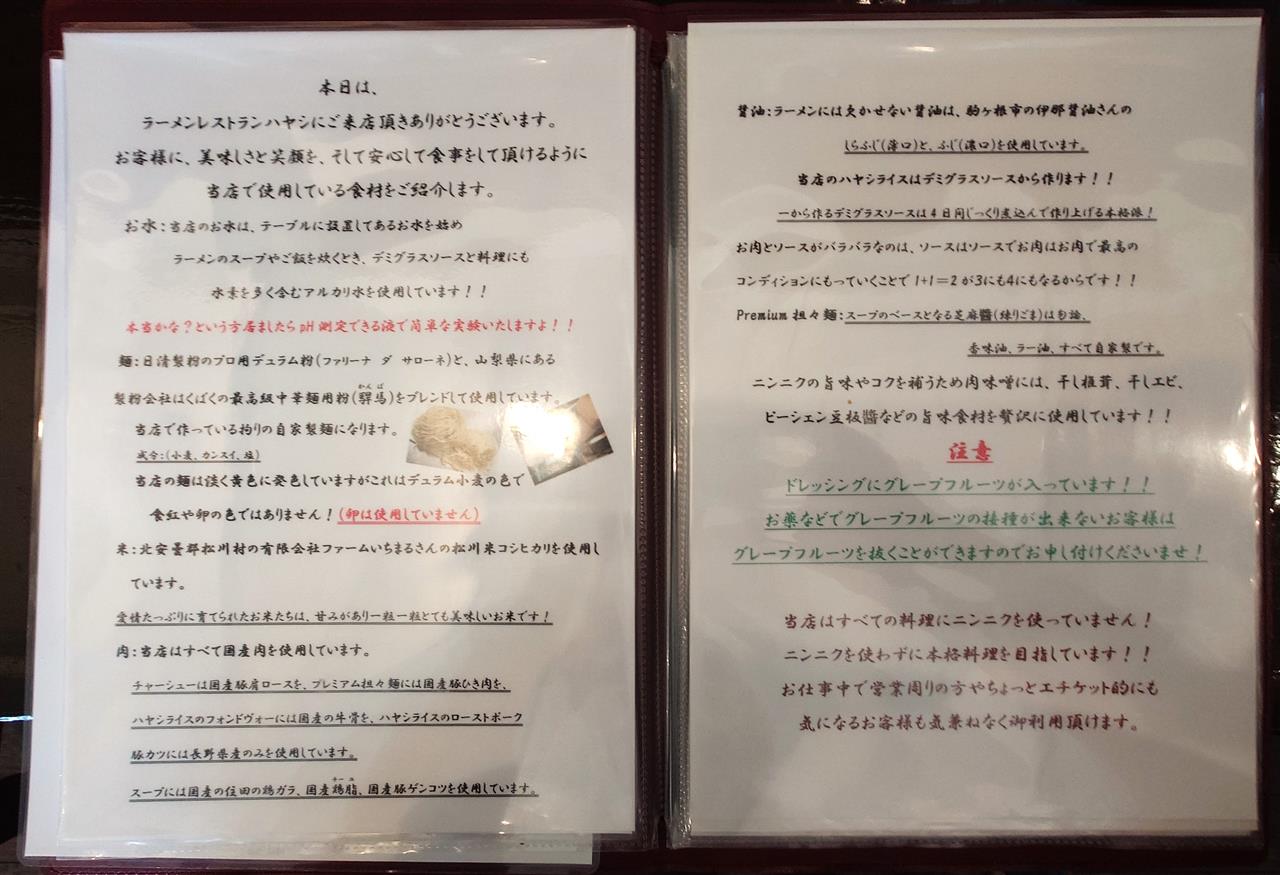 本日は、
ラーメンレストランハヤシにご来店頂きありがとうございます。
お客様に、美味しさと笑顔を、そして安心して食事をして頂けるように
当店で使用している食材をご紹介します。
お水：当店のお水は、テーブルに設置してあるお水を始め
ラーメンのスープやご飯を炊くとき、デミグラスソースと料理にも
水素を多く含むアルカリ水を使用しています！！
本当かな？という方居ましたらpH測定できる液で簡単な実験いたしますよ！！
麺：日清製粉のプロ用デュラム粉(ファリーナ ダ サローネ)と、山梨県にある
製粉会社はくばくの最高級中華麺用粉(騨馬)をブレンドして使用しています。
かんば
当店で作っている拘りの自家製麺になります。
成分：(小麦、カンスイ、塩)
当店の麺は淡く黄色に発色していますがこれはデュラム小麦の色で
食紅や卵の色ではありません！(卵は使用していません)
米：北安曇郡松川村の有限会社ファームいちまるさんの松川米コシヒカリを使用し
ています。
愛情たっぷりに育てられたお米たちは、甘みがあり一粒一粒とても美味しいお米です！
肉：当店はすべて国産肉を使用しています。
チャーシューは国産豚肩ロースを、プレミアム担々麺には国産豚ひき肉を、
ハヤシライスのフォンドヴォーには国産の牛骨を、ハヤシライスのローストポーク
豚カツには長野県産のみを使用しています。
スープには国産の住田の鶏ガラ、国産鶏脂、国産豚ゲンコツを使用しています。
チーユ
醤油：ラーメンには欠かせない醤油は、駒ヶ根市の伊那醤油さんの
しらふじ(薄口)と、ふじ(濃口)を使用しています。
当店のハヤシライスはデミグラスソースから作ります！！
一から作るデミグラスソースは4日間じっくり煮込んで作り上げる本格派！
お肉とソースがバラバラなのは、ソースはソースでお肉はお肉で最高の
コンディションにもっていくことで1+1＝2が3にも4にもなるからです！！
Premium担々麺：スープのベースとなる芝麻醬(練りごま)は勿論、
香味油、ラー油、すべて自家製です。
ニンニクの旨味やコクを補うため肉味噌には、干し椎茸、干しエビ、
ピーシェン豆板醬などの旨味食材を贅沢に使用しています！！
注意
ドレッシングにグレープフルーツが入っています！！
お薬などでグレープフルーツの接種が出来ないお客様は
グレープフルーツを抜くことができますのでお申し付けくださいませ！
当店はすべての料理にニンニクを使っていません！
ニンニクを使わずに本格料理を目指しています！！
お仕事中で営業周りの方やちょっとエチケット的にも
気になるお客様も気兼ねなく御利用頂けます。